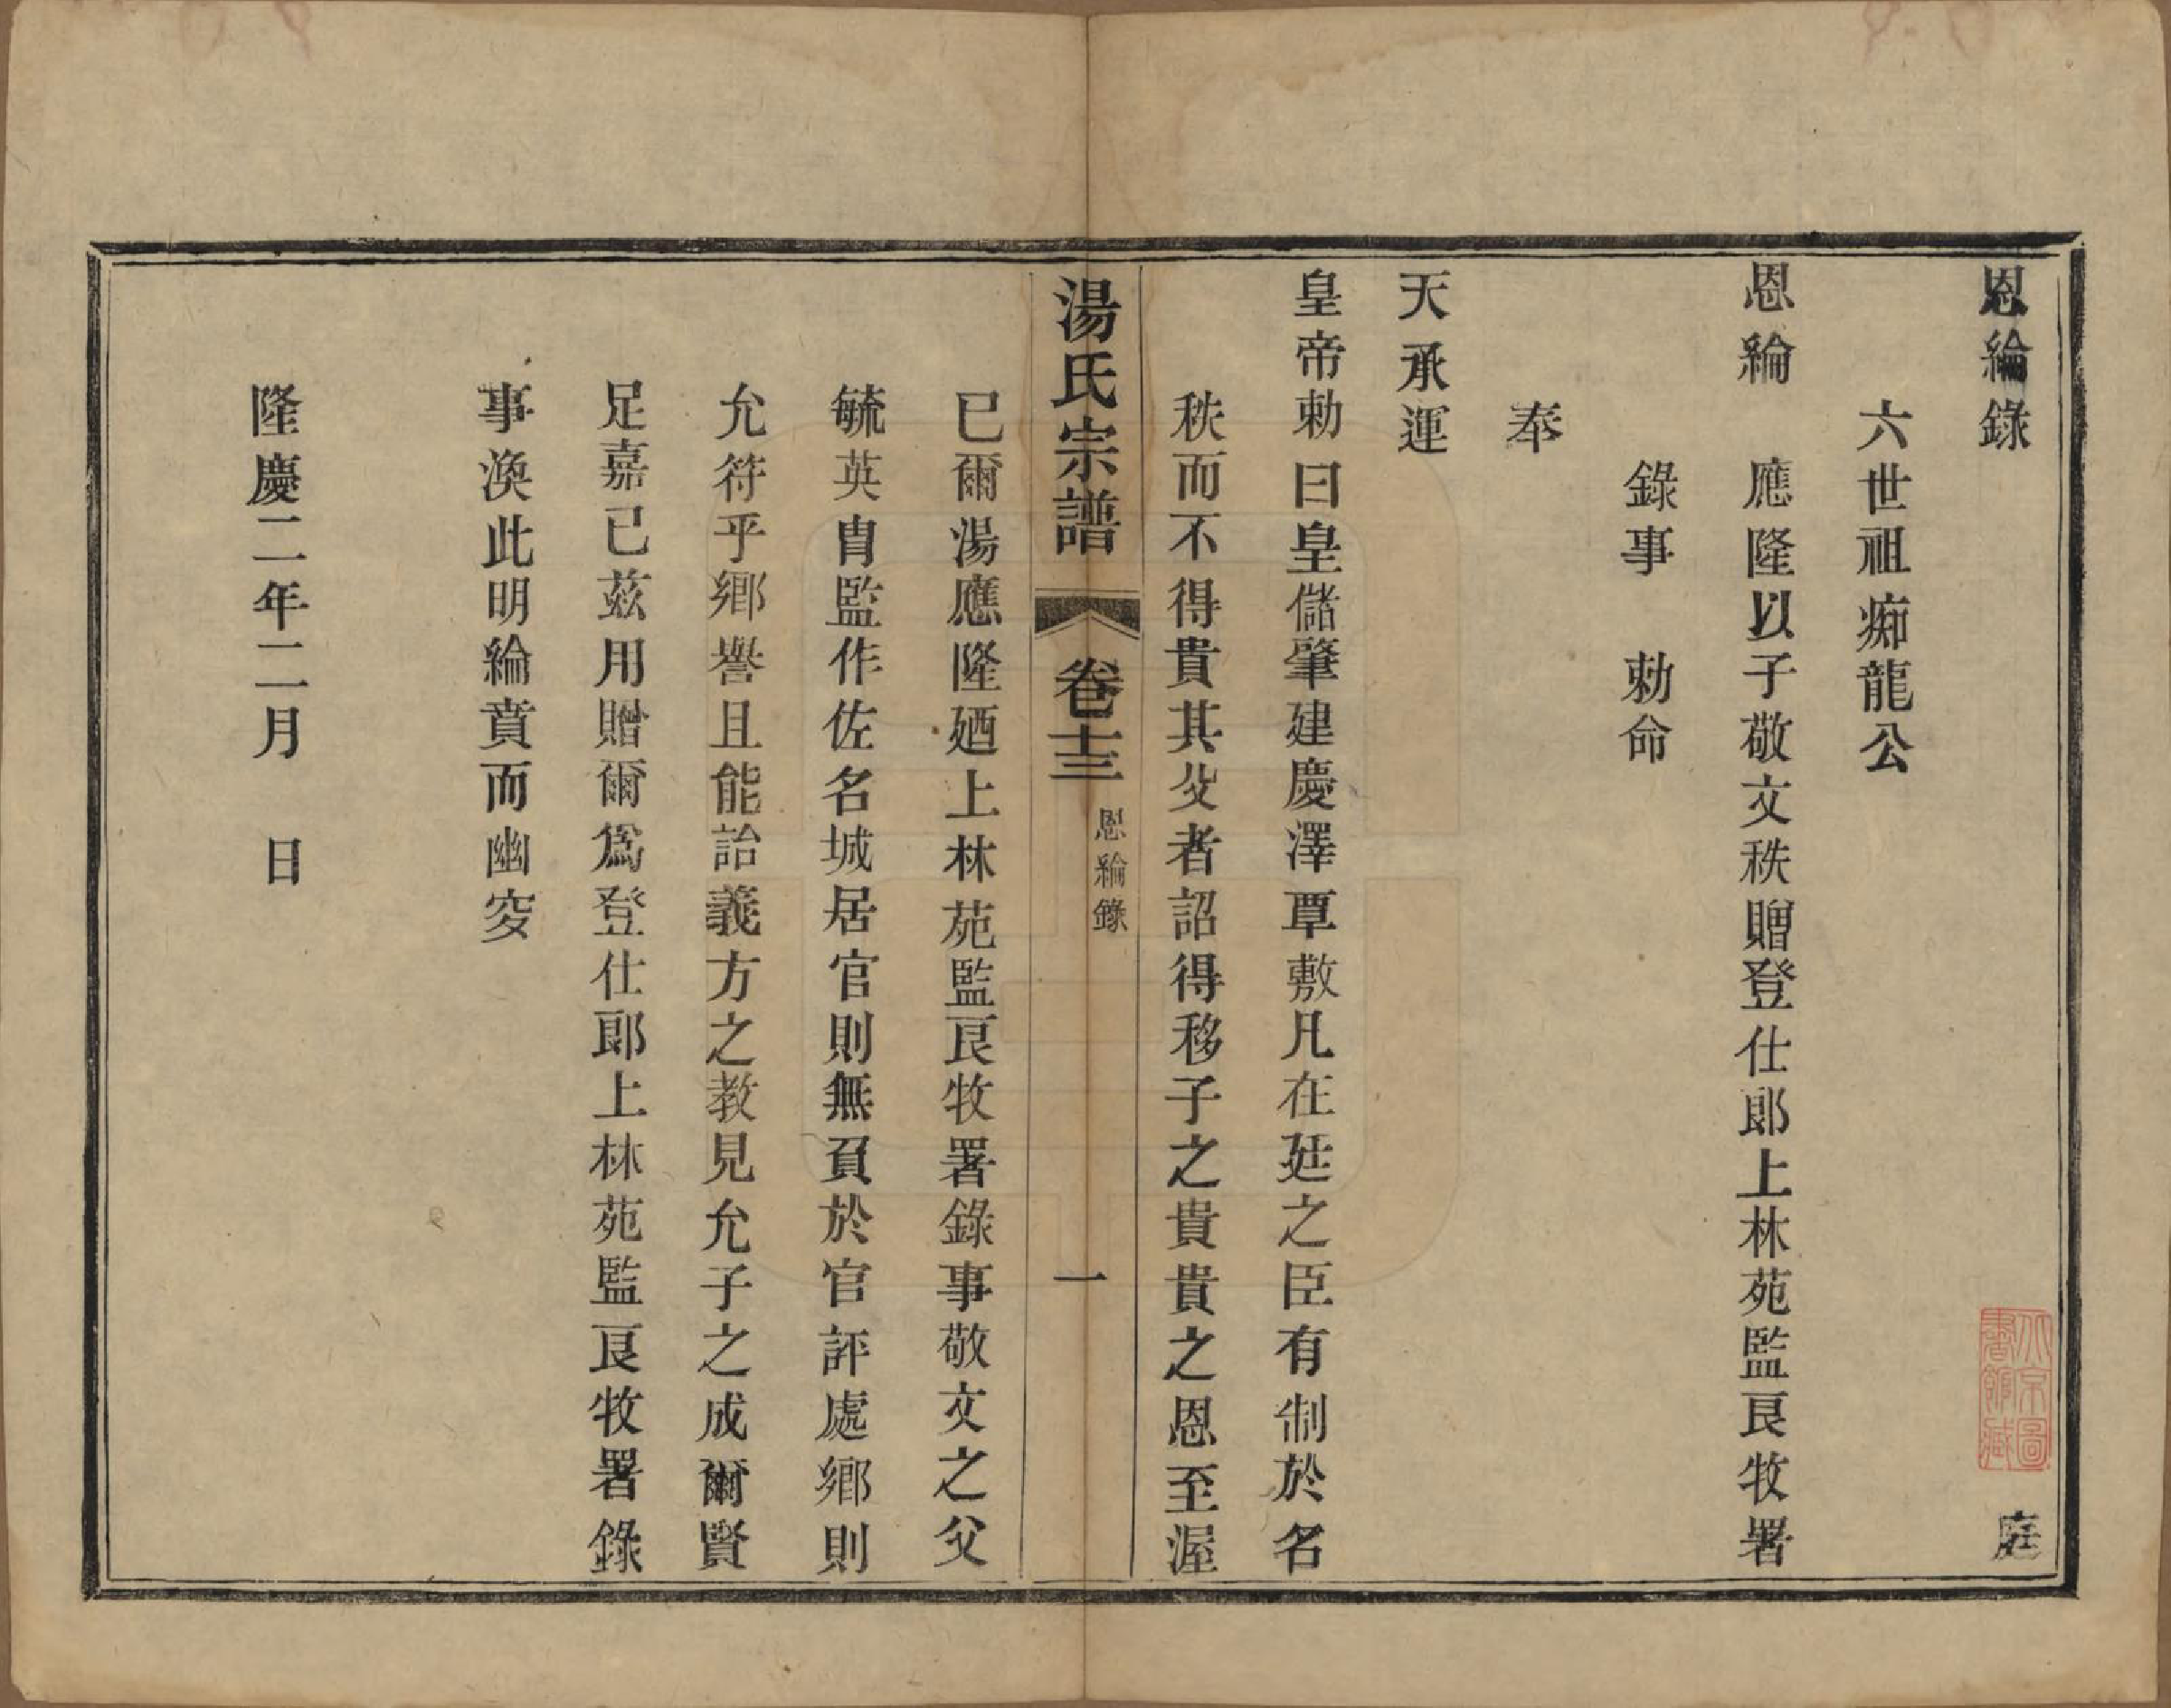 恩綸錄　庭
六世祖痴龍公
恩綸　應隆以子敬文秩贈登仕郎上林苑監良牧署
錄事　勅命
奉
天承運
皇帝勅曰皇儲肇建慶澤覃敷凡在廷之臣有制於名
秩而不得貴其父者詔得移子之貴貴之恩至渥
已爾湯應隆廼上林苑監良牧署錄事敬文之父
毓英冑監作佐名城居官則無負於官評處鄉則
允符乎鄉譽且能詒義方之教見允子之成爾賢
足嘉已茲用贈爾爲登仕郎上林苑監良牧署錄
事渙此明綸賁而幽窔
隆慶二年二月　日
湯氏宗譜　卷十三　恩綸錄　一
北京圖書館藏